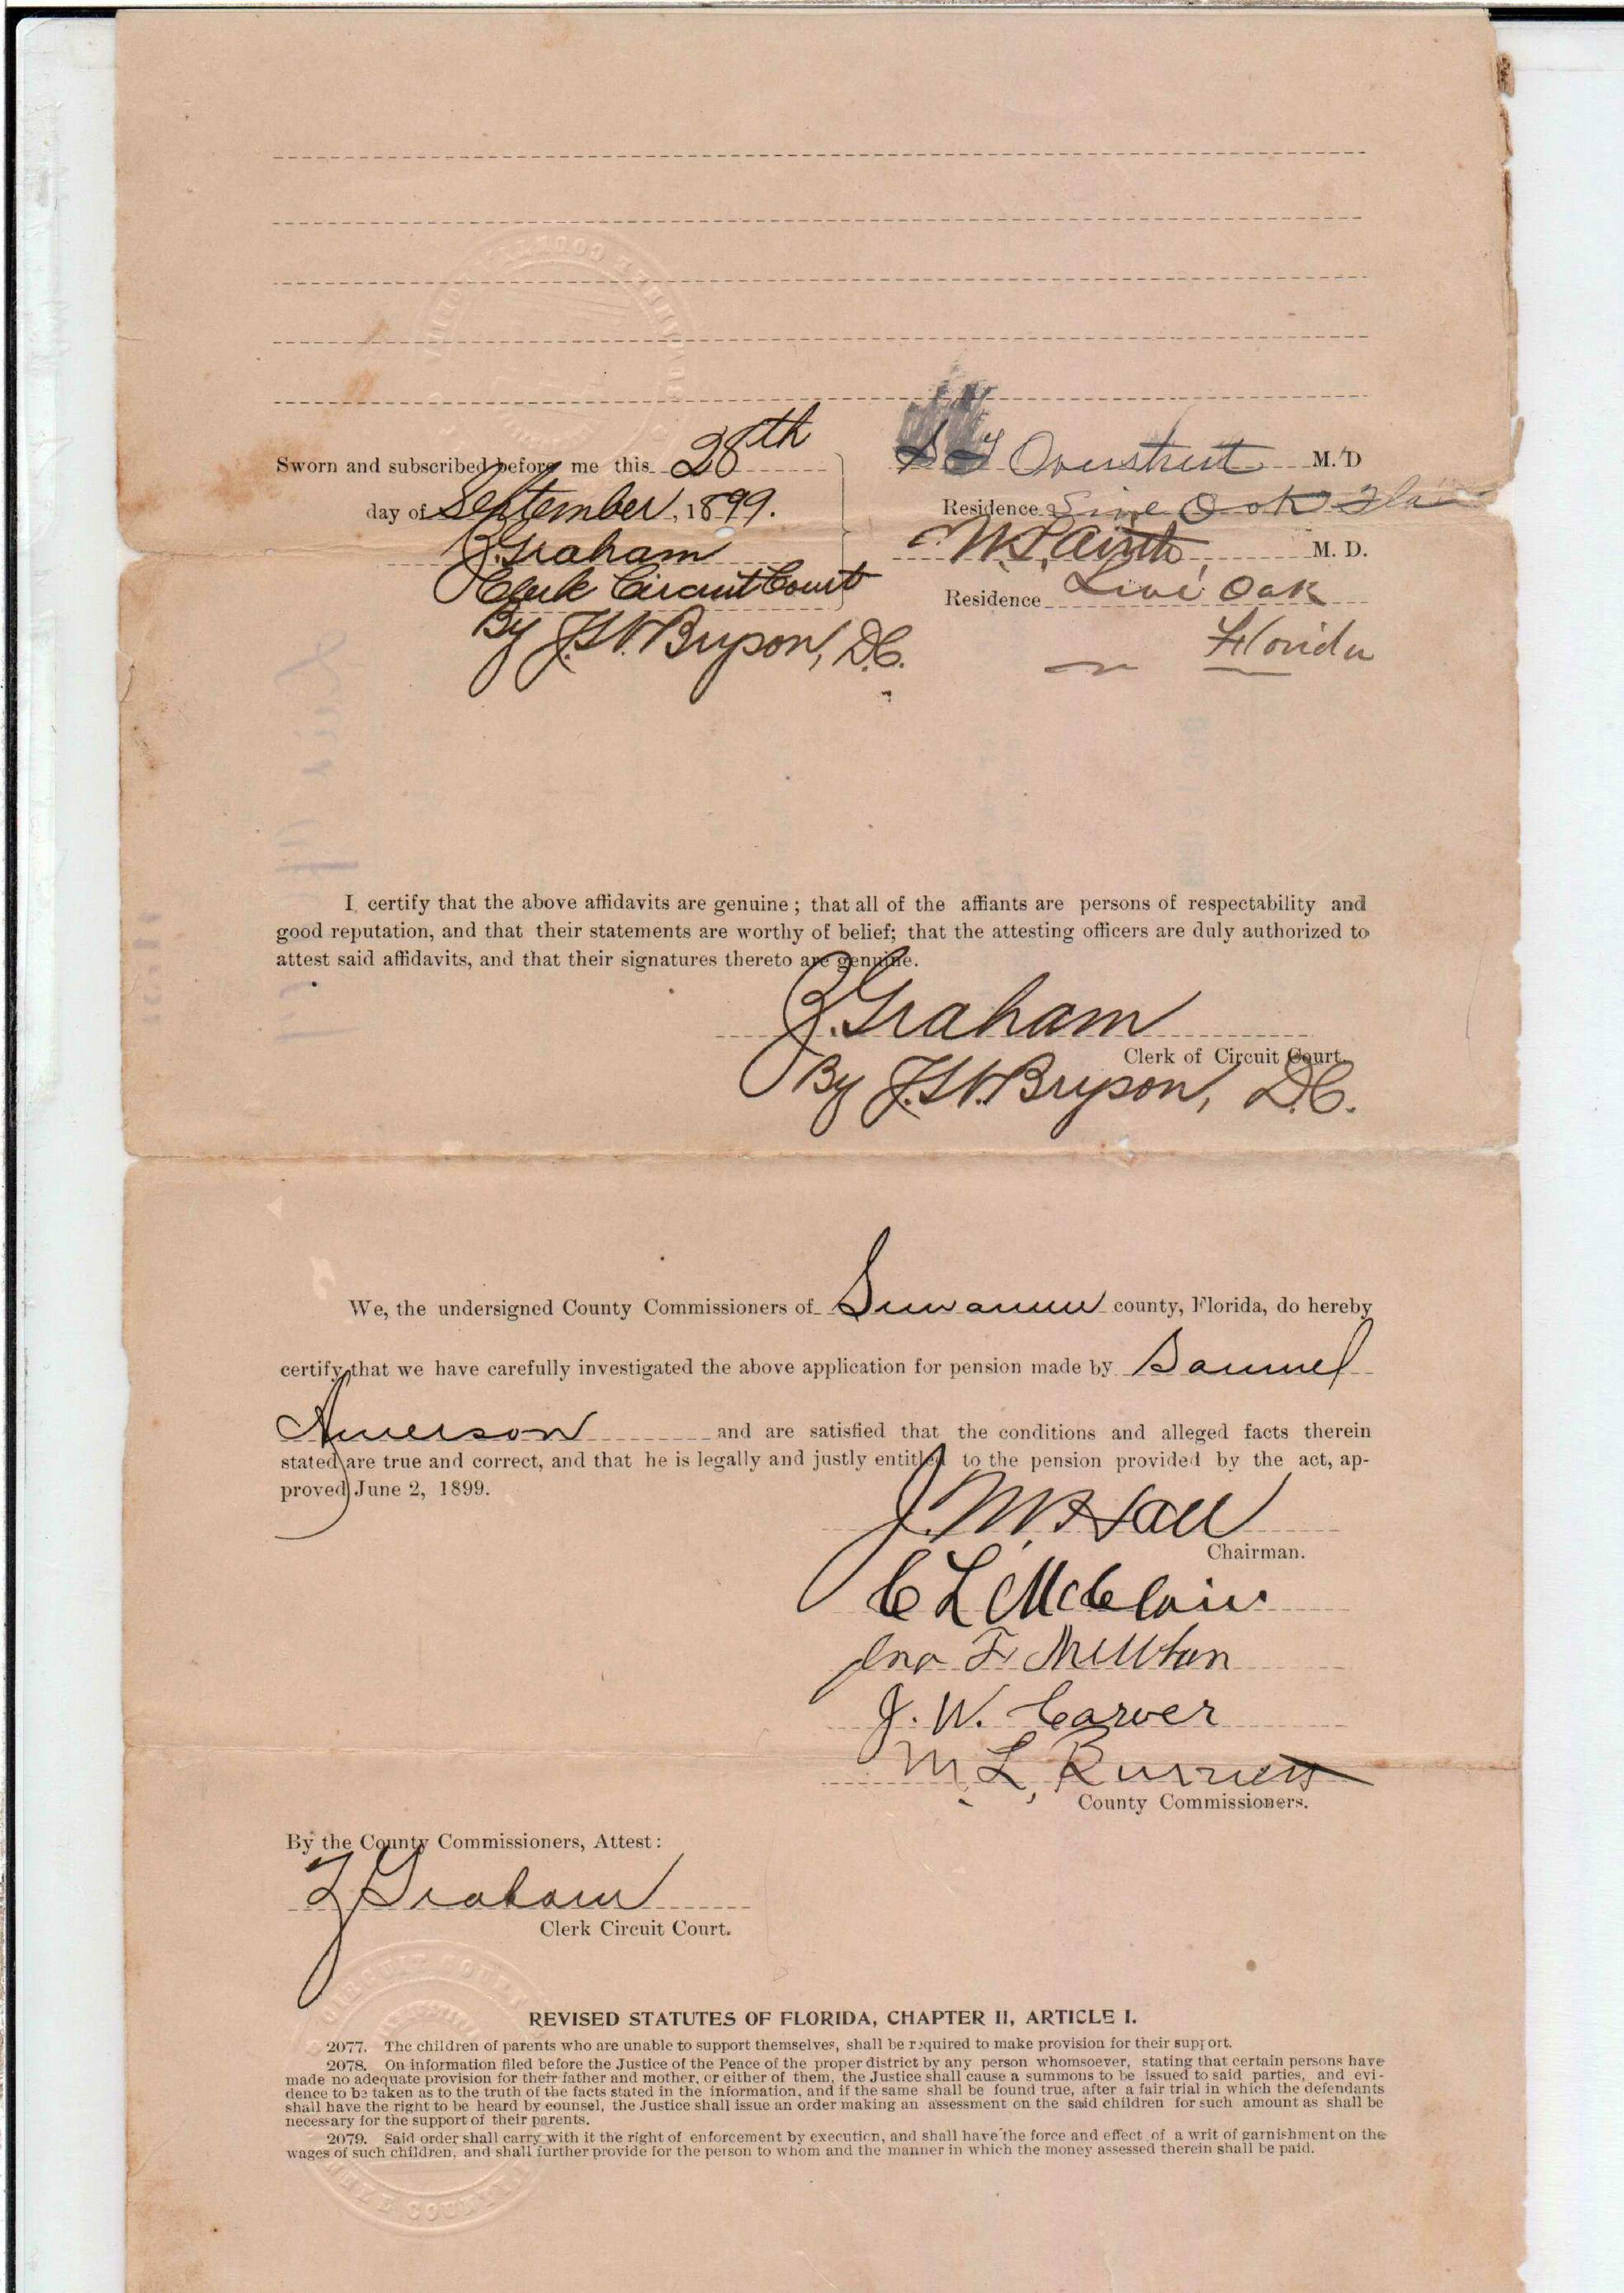 Sworn and subscribed before me this 28th
day of September, 1899.
Graham
Clerk Circuit Court
By J.W. Bryson, D.C.
Overstreet M. D
Residence Live Oak Fla
M. D.
Residence Live Oak
Florida
I certify that the above affidavits are genuine; that all of the affiants are persons of respectability and
good reputation, and that their statements are worthy of belief; that the attesting officers are duly authorized to
attest said affidavits, and that their signatures thereto are genuine.
Graham
Clerk of Circuit Court.
By J.W. Bryson, D.C.
We, the undersigned County Commissioners of Suwannee county, Florida, do hereby
certify that we have carefully investigated the above application for pension made by Samuel
Amerson and are satisfied that the conditions and alleged facts therein
stated are true and correct, and that he is legally and justly entitled to the pension provided by the act, ap-
proved June 2, 1899.
J. M. Hall
Chairman.
C L McClain
Jno F
J. W. Carver
M. L.
County Commissioners.
By the County Commissioners, Attest:
Graham
Clerk Circuit Court.
CIRCUIT COURT
REVISED STATUTES OF FLORIDA, CHAPTER II, ARTICLE I.
2077. The children of parents who are unable to support themselves, shall be required to make provision for their support.
2078. On information filed before the Justice of the Peace of the proper district by any person whomsoever, stating that certain persons have
made no adequate provision for their father and mother, or either of them, the Justice shall cause a summons to be issued to said parties, and evi-
dence to be taken as to the truth of the facts stated in the information, and if the same shall be found true, after a fair trial in which the defendants
shall have the right to be heard by counsel, the Justice shall issue an order making an assessment on the said children for such amount as shall be
necessary for the support of their parents.
2079. Said order shall carry with it the right of enforcement by execution, and shall have the force and effect of a writ of garnishment on the
wages of such children, and shall further provide for the person to whom and the manner in which the money assessed therein shall be paid.